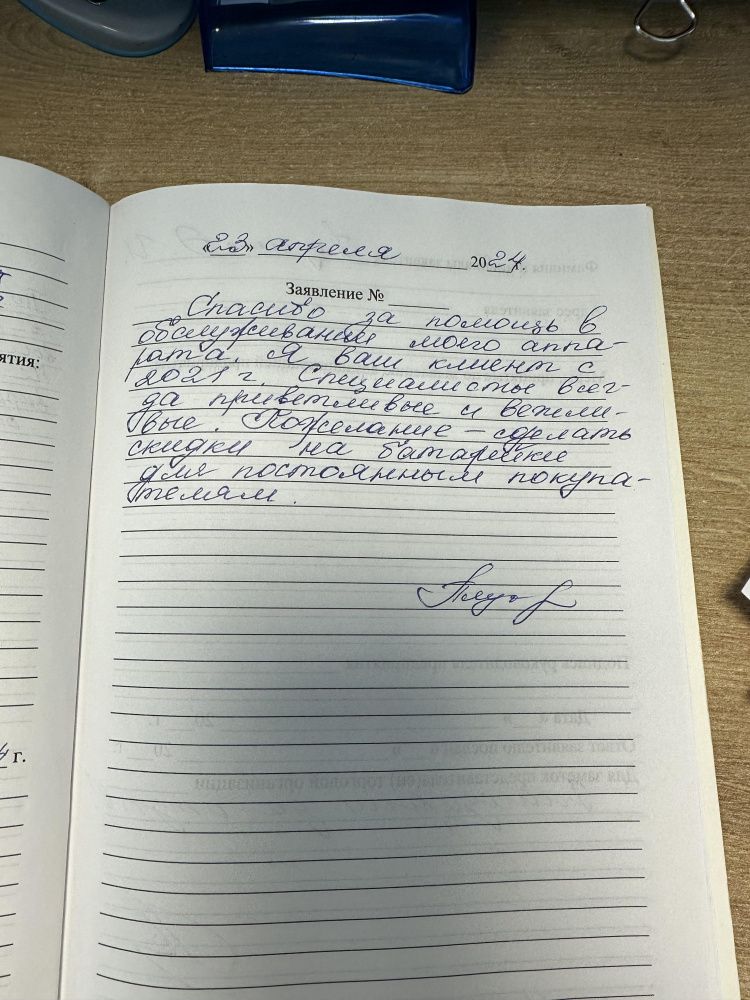 «23» апреля 2024г.
Заявление №
Спасибо за помощь в
обслуживании моего аппа-
рата. Я ваш клиент с
2021 г. Специалисты всег-
да приветливые и вежли-
вые. Пожелание - сделать
скидки на батарейки
для постоянным покупа-
телям.
ятия:
г.